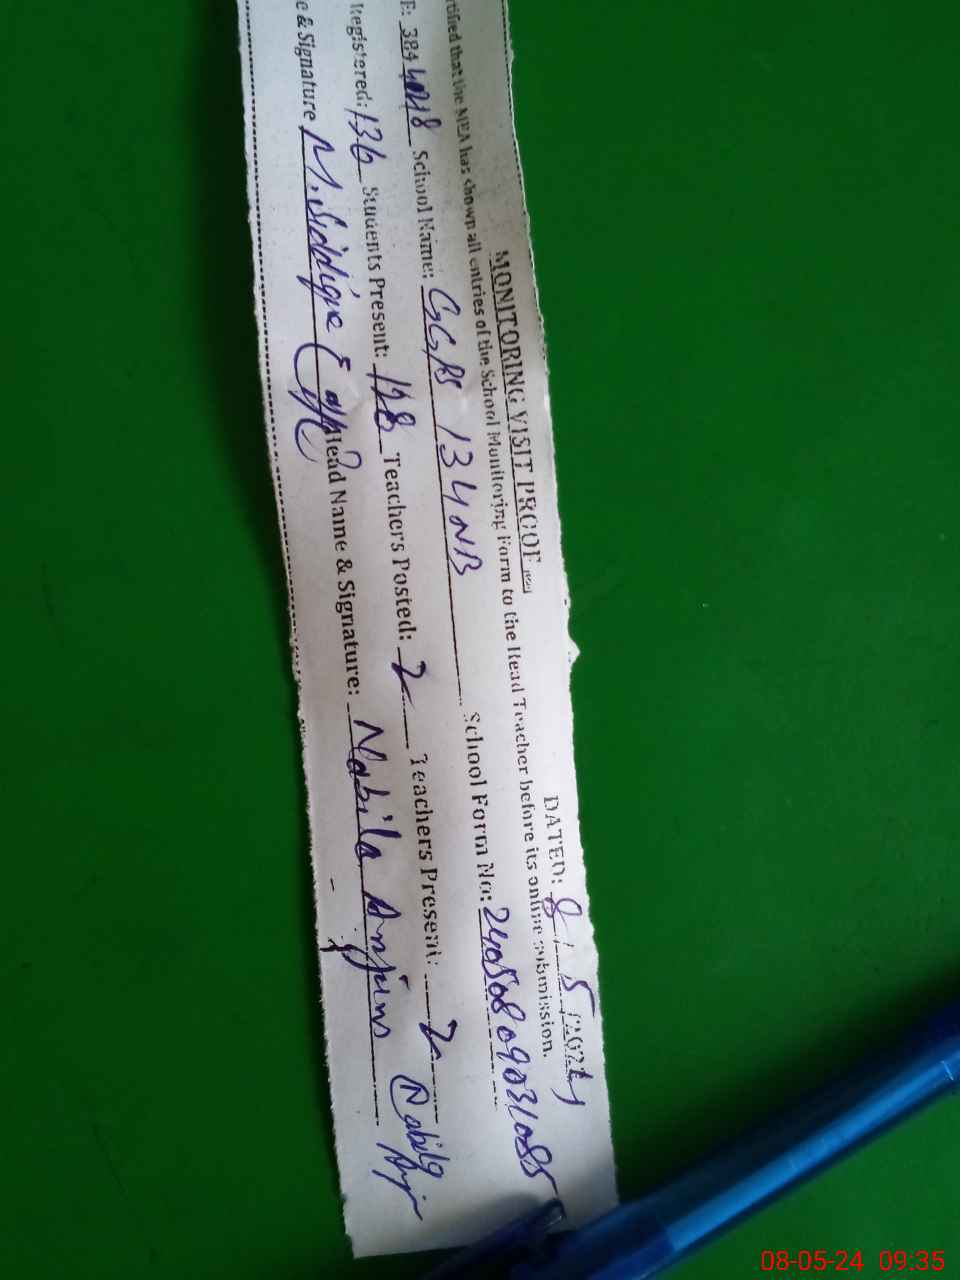 MONITORING VISIT PROOF
DATED: 8 / 5 /2024
rtified that the MEA has shown all entries of the School Monitoring Form to the Head Teacher before its online submission.
School Name: GGPS 134NB School Form No: 24050809031085
Registered: 136 Students Present: 128 Teachers Posted: 2 Teachers Present: 2
e & Signature M. Siddique Head Name & Signature: Nabila Anjum Nabila
08-05-24 09:35